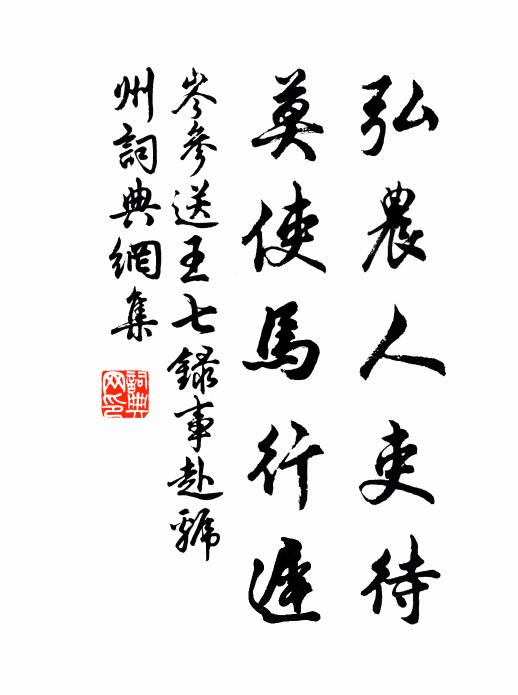 弘農人吏待
莫使馬行遲
岑參送王七錄事赴虢
州詞典網集
詞典網印